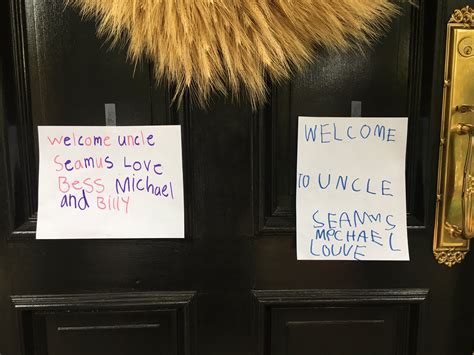 Welcome uncle
Seamus Love
Bess Michael
and Billy
WELCOME
TO UNCLE
SEAMUS
MPCHAEL
LOUVE